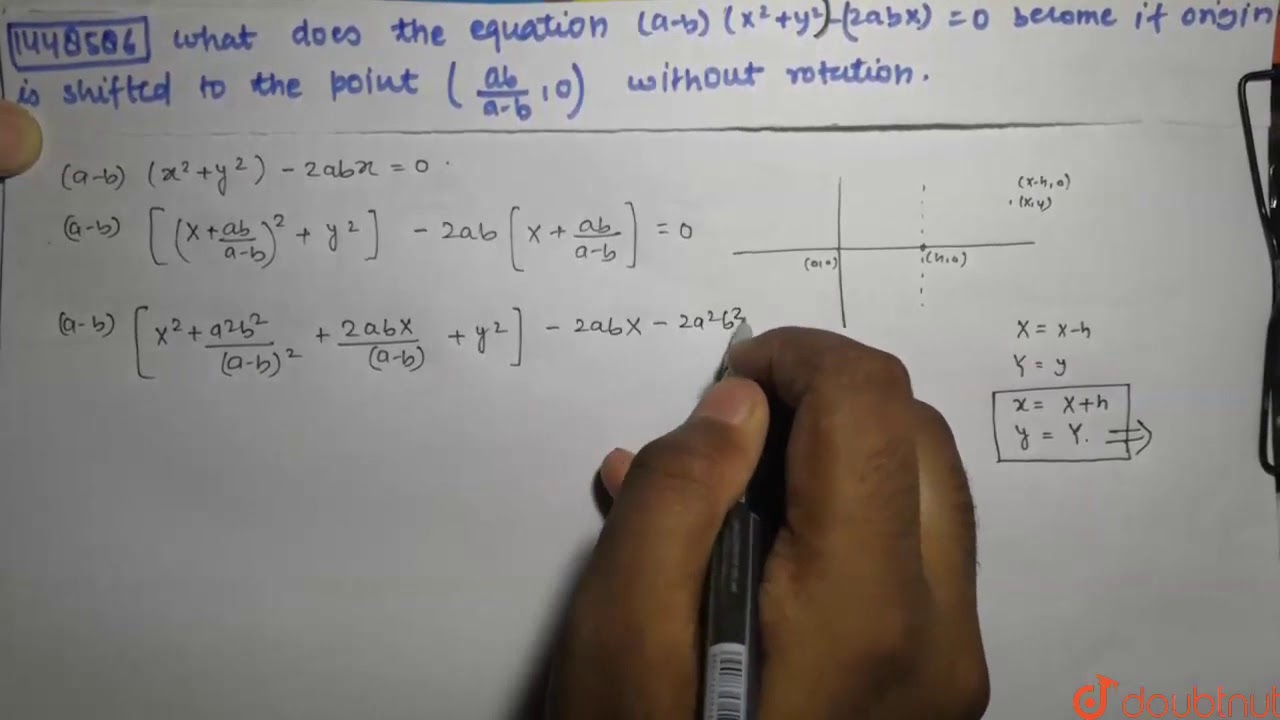 1448586 what does the equation (a-b) (x²+y²)-(2abx) = 0 become if origin
is shifted to the point (ab/a-b, 0) without rotation.
(a-b) (x²+y²) - 2abx = 0.
(a-b) [(X+ab/a-b)² + y²] - 2ab [X + ab/a-b] = 0
(a-b) [X² + a²b²/(a-b)² + 2abX/(a-b) + y²] - 2abX - 2a²b²
(x-h, 0)
(x, y)
(0,0)
(h, 0)
X = x-h
Y = y
x = X+h
y = Y. ⇒
doubtnut